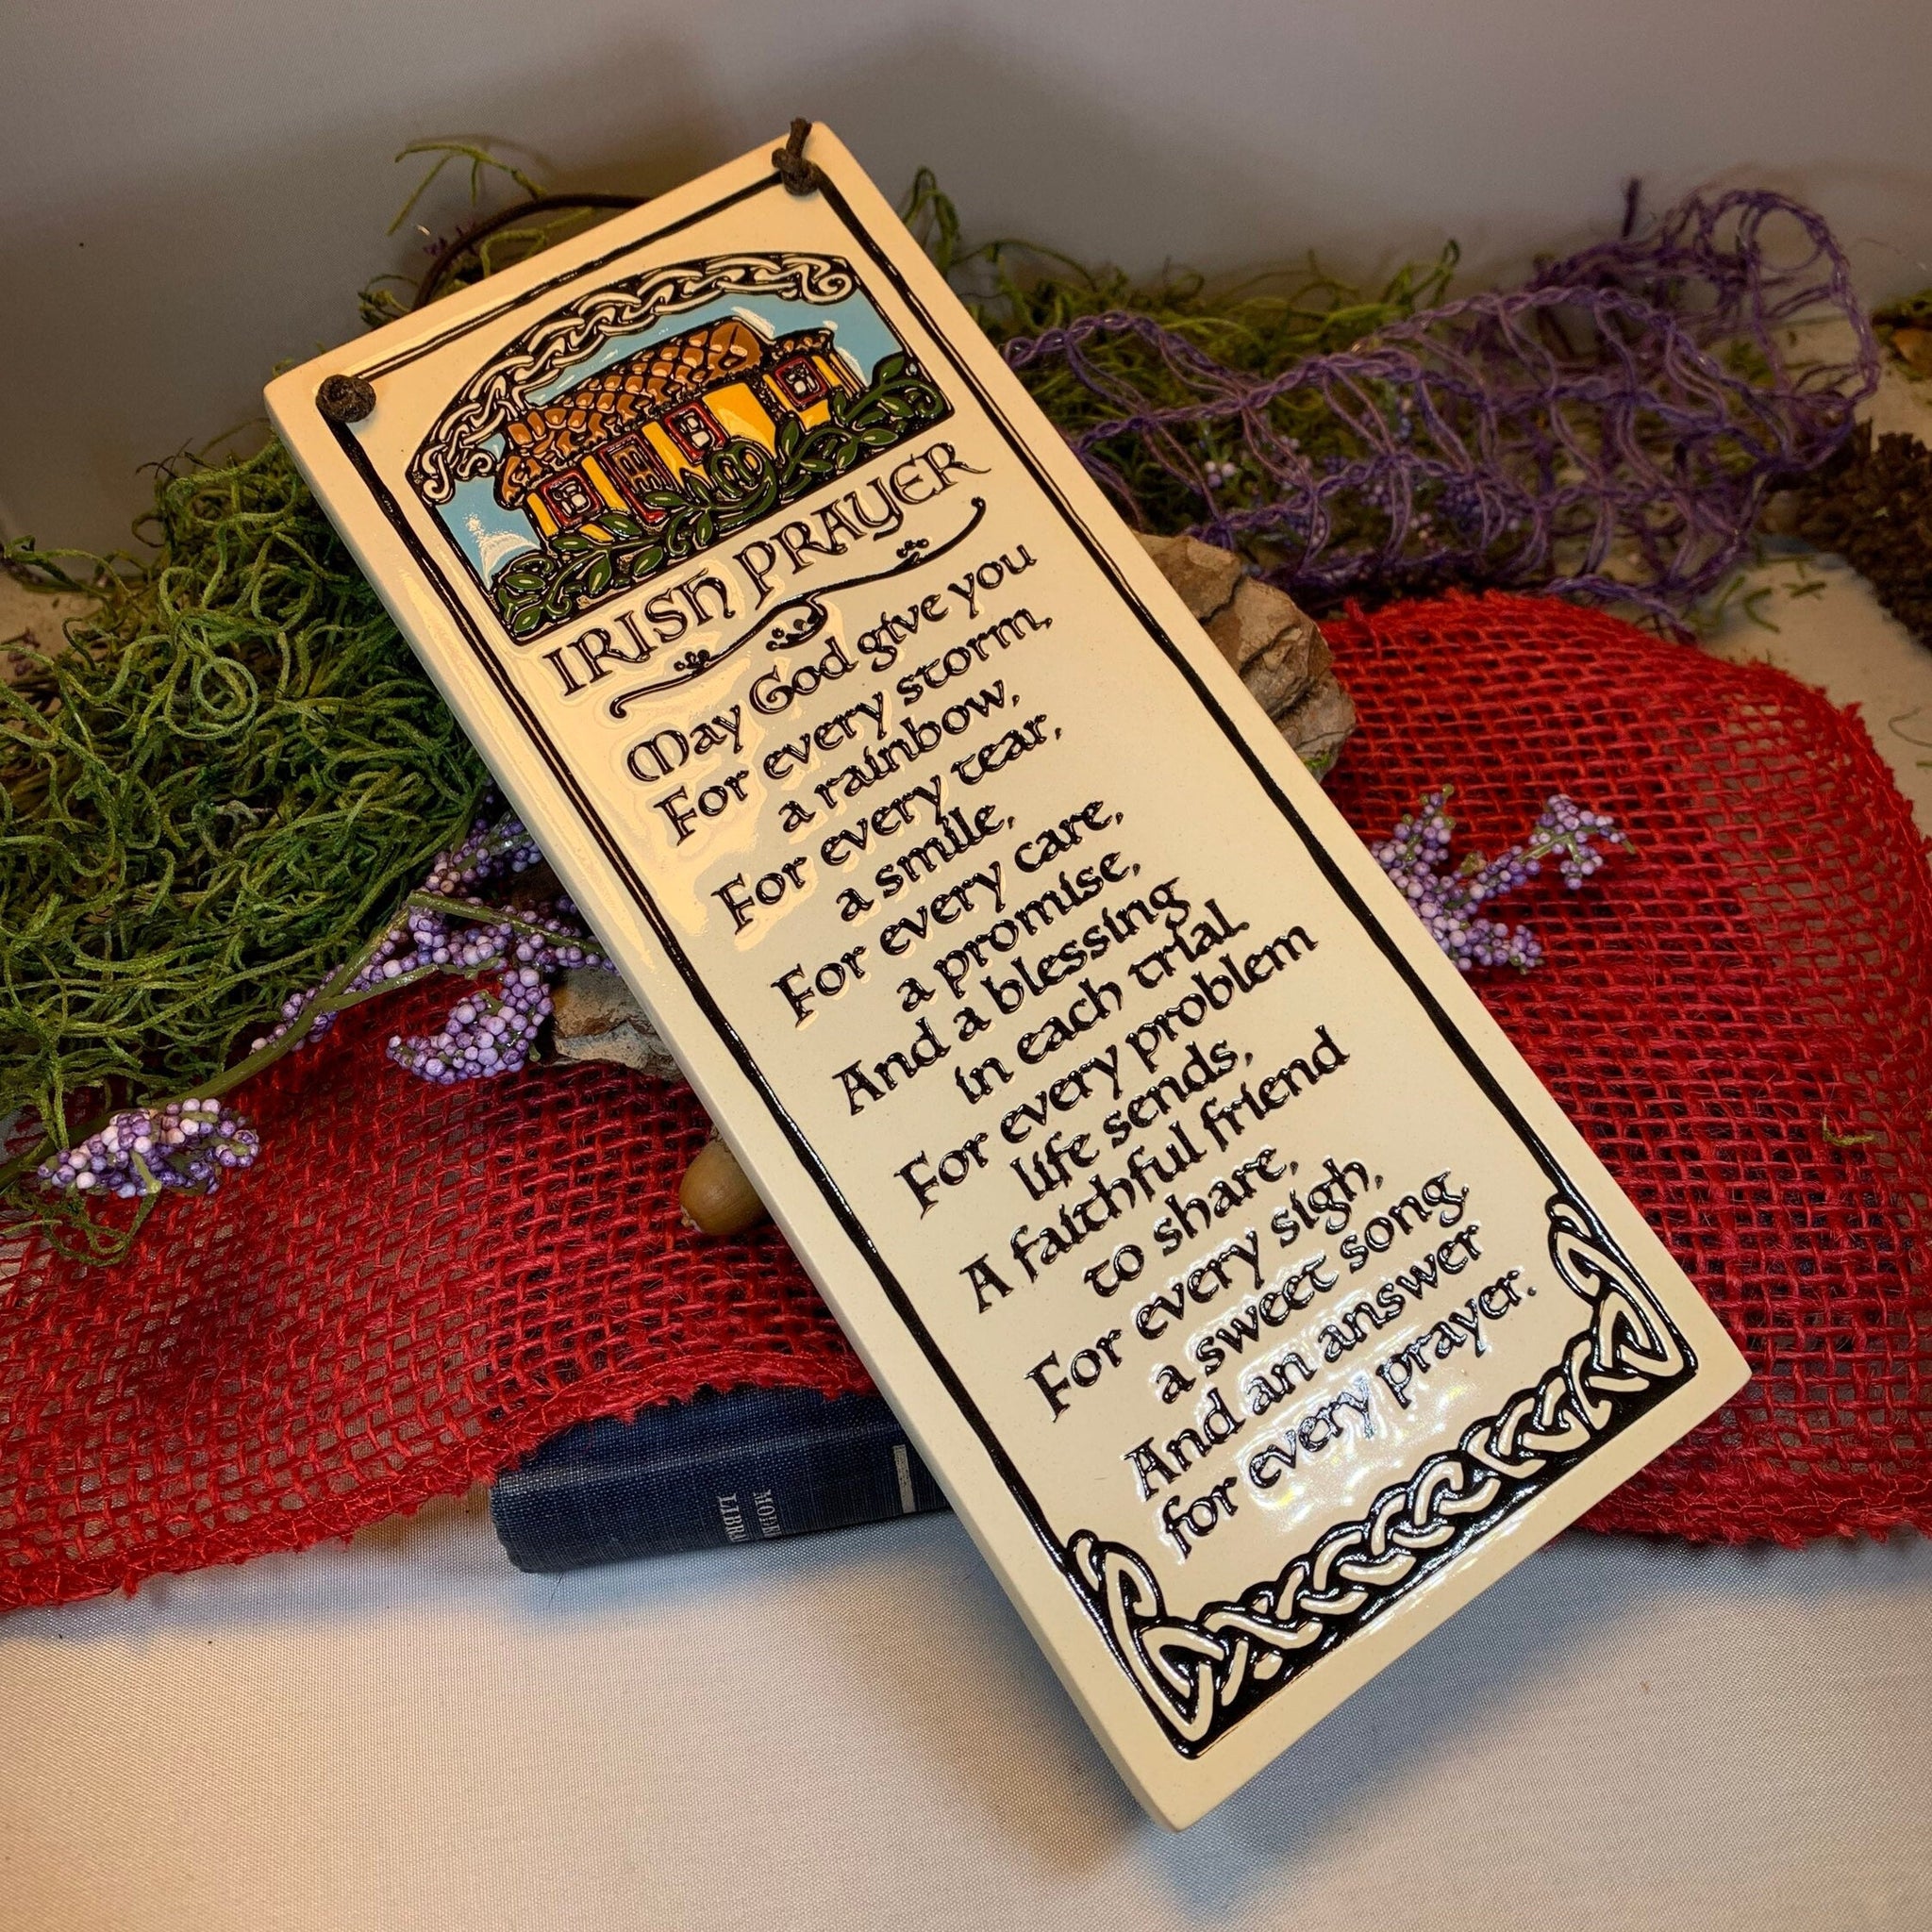 IRISH PRAYER
May God give you
For every storm,
a rainbow,
For every tear,
a smile,
For every care,
a promise,
And a blessing
in each trial.
For every problem
life sends,
A faithful friend
to share,
For every sigh,
a sweet song
And an answer
for every prayer.